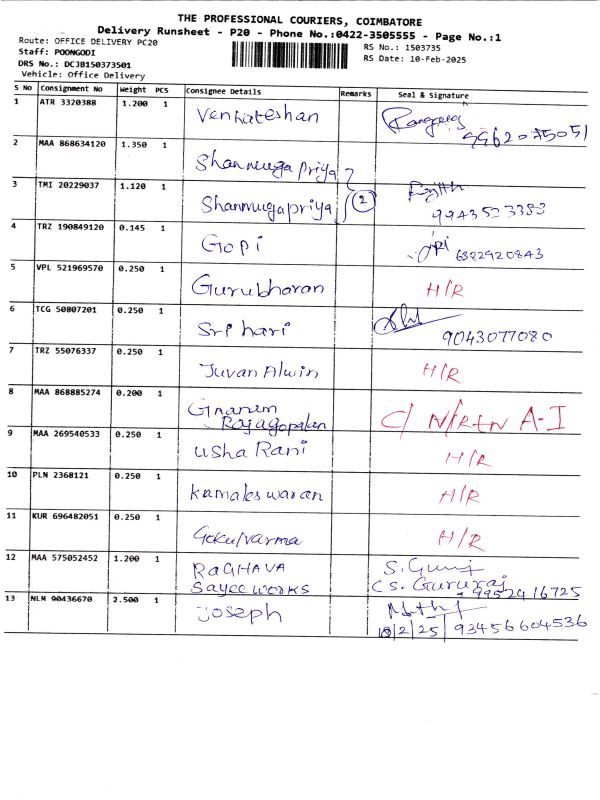 THE PROFESSIONAL COURIERS, COIMBATORE
Delivery Runsheet - P20 - Phone No.:0422-3505555 - Page No.:1
Route: OFFICE DELIVERY PC20
RS No.: 1503735
Staff: POONGODI
RS Date: 10-Feb-2025
DRS No.: DCJB150373501
Vehicle: Office Delivery
S No Consignment No Weight PCS Consignee Details Remarks Seal & Signature
1 ATR 3320388 1.200 1 Venkateshan 9962075051
2 MAA 868634120 1.350 1 Shanmuga Priya
3 TMI 20229037 1.120 1 Shanmugapriya 2 9943523383
4 TRZ 190849120 0.145 1 Gopi 6382920843
5 VPL 521969570 0.250 1 Gurubharan H/R
6 TCG 50807201 0.250 1 Sri hari 9043077080
7 TRZ 55076337 0.250 1 Juvan Alwin H/R
8 MAA 868885274 0.200 1 Gnanam Rajagopalan C/ N/Rtn A-I
9 MAA 269540533 0.250 1 Usha Rani H/R
10 PLN 2368121 0.250 1 kamaleswaran H/R
11 KUR 696482051 0.250 1 Gokulvarma H/R
12 MAA 575052452 1.200 1 RAGHAVA
Sayee works CS. Gururaj 9952416725
13 NLM 90436670 2.500 1 Joseph
10/2/25 93456604536